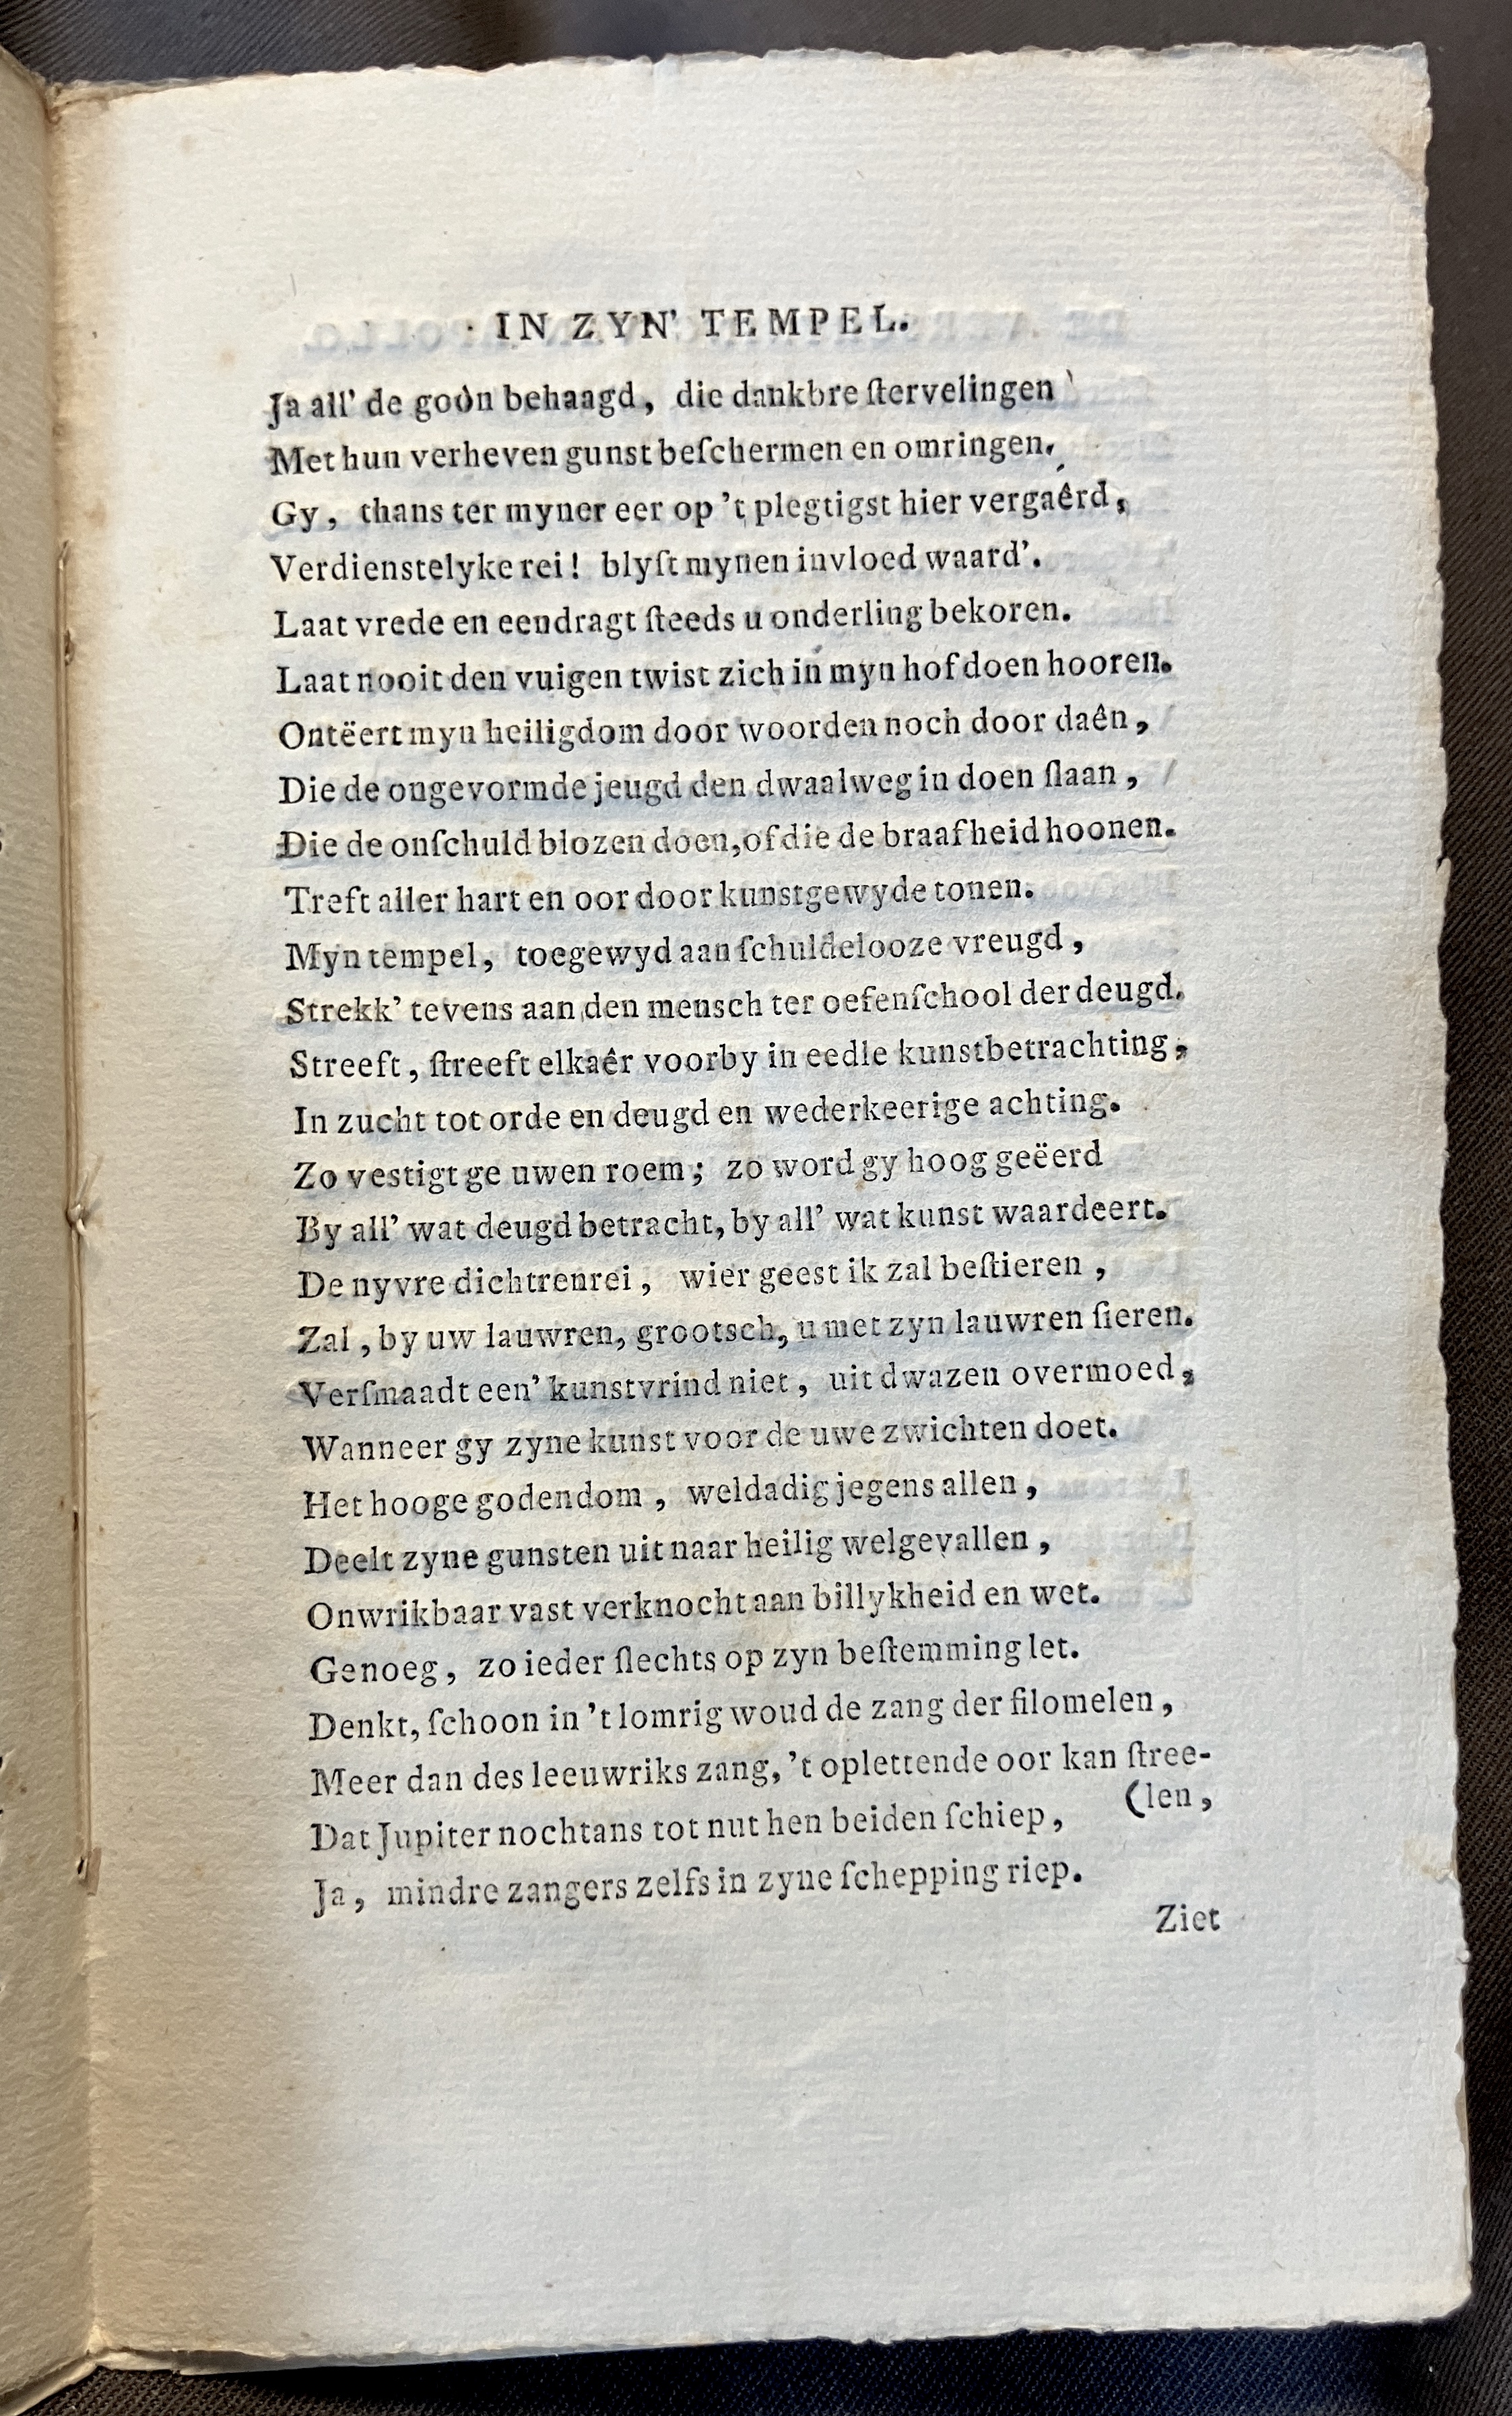 IN ZYN' TEMPEL.
Ja all' de goôn behaagd, die dankbre ſtervelingen
Met hun verheven gunst beſchermen en omringen.
Gy, thans ter myner eer op 't plegtigst hier vergaêrd,
Verdienstelyke rei! blyſt mynen invloed waard'.
Laat vrede en eendragt ſteeds u onderling bekoren.
Laat nooit den vuigen twist zich in myn hof doen hooren.
Ontëert myn heiligdom door woorden noch door daên,
Die de ongevormde jeugd den dwaalweg in doen ſlaan,
Die de onſchuld blozen doen, of die de braafheid hoonen.
Treft aller hart en oor door kunstgewyde tonen.
Myn tempel, toegewyd aan ſchuldelooze vreugd,
Strekk' tevens aan den mensch ter oefenſchool der deugd.
Streeft, ſtreeft elkaêr voorby in eedle kunstbetrachting,
In zucht tot orde en deugd en wederkeerige achting.
Zo vestigt ge uwen roem; zo word gy hoog geëerd
By all' wat deugd betracht, by all' wat kunst waardeert.
De nyvre dichtrenrei, wier geest ik zal beſtieren,
Zal, by uw lauwren, grootsch, u met zyn lauwren ſieren.
Verſmaadt een' kunstvrind niet, uit dwazen overmoed,
Wanneer gy zyne kunst voor de uwe zwichten doet.
Het hooge godendom, weldadig jegens allen,
Deelt zyne gunsten uit naar heilig welgevallen,
Onwrikbaar vast verknocht aan billykheid en wet.
Genoeg, zo ieder ſlechts op zyn beſtemming let.
Denkt, ſchoon in 't lomrig woud de zang der filomelen,
Meer dan des leeuwriks zang, 't oplettende oor kan ſtree-
(len,
Dat Jupiter nochtans tot nut hen beiden ſchiep,
Ja, mindre zangers zelfs in zyne ſchepping riep.
Ziet